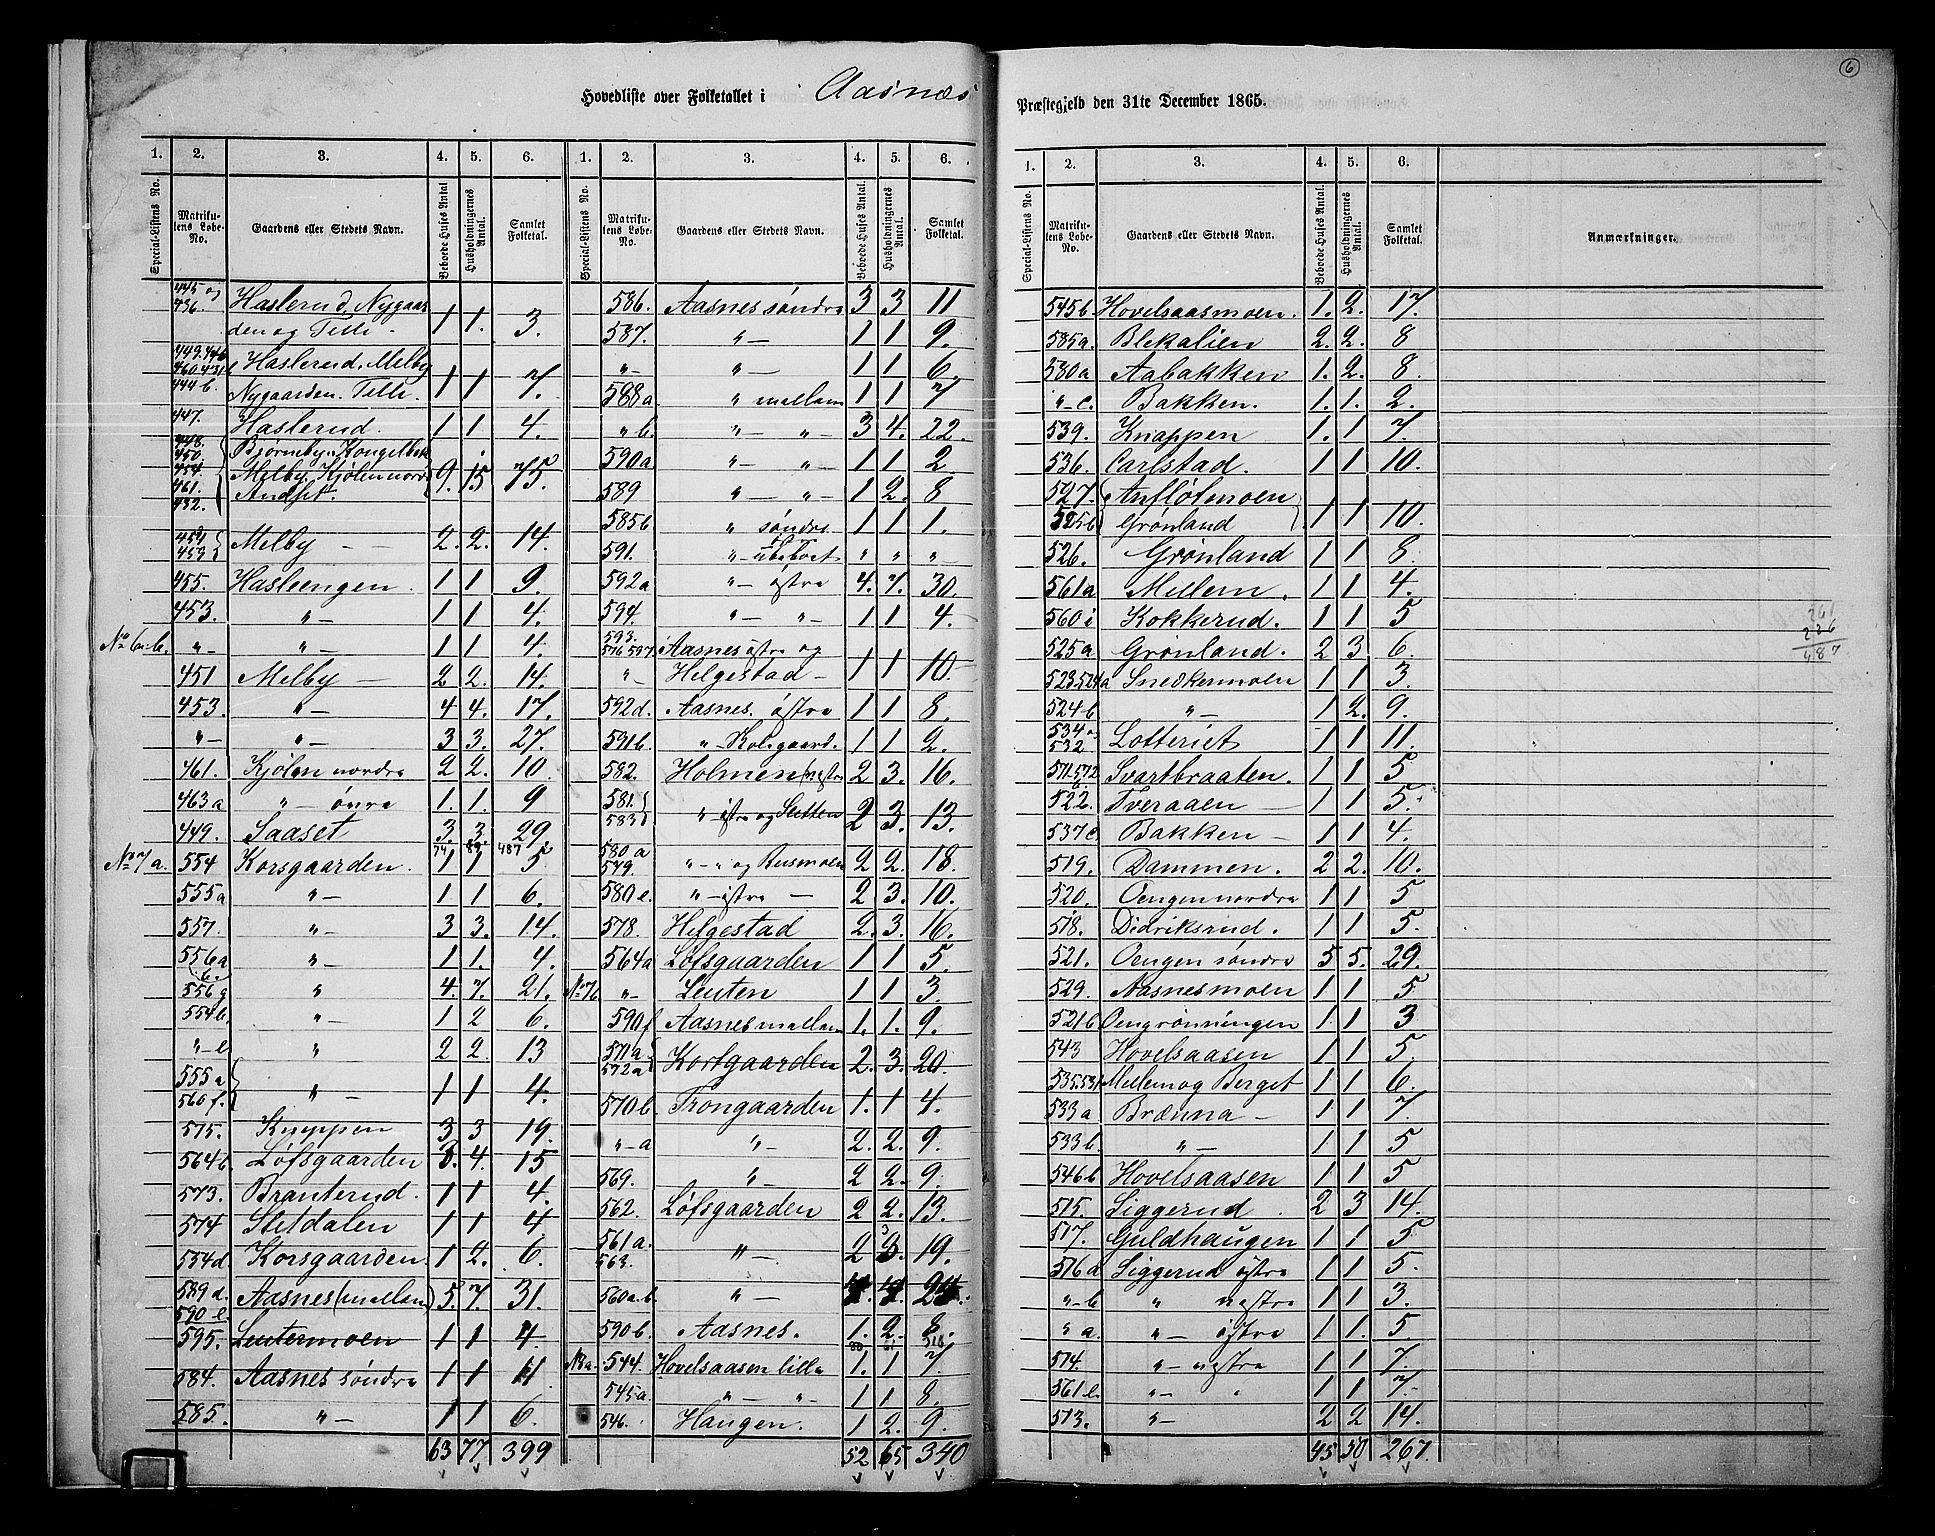 6
Hovedliste over Folketallet i Aasnæs Præstegjeld den 31te December 1865.
1. 2. 3. 4. 5. 6. 1. 2. 3. 4. 5. 6.
Special-Listens No. Matrikulens Løbe-No. Gaardens eller Stedets Navn. Beboede Huses Antal Husholdningernes Antal. Samlet Folketal. Special-Listens No. Matrikulens Løbe-No. Gaardens eller Stedets Navn. Beboede Huses Antal. Husholdningernes Antal. Samlet Folketal.
445 og 436. Haslerud, Nygaar
den og Tilli - 1 1. 3.
Haslerud, Melby
444 b. Nygaarden. Tilli. 1 1 7.
447. Haslerud. 1 1 4.
448. 450. Bjørneby, Kongelbæk
454. 461. Melby, Kjølen nord 9. 15 75.
432. Andset.
453 Melby - - 2. 2. 14.
455. Hasleengen. 1 1 9.
453. " - 1 1 4.
No 6a-b. " - " - 1 1 4.
451 Melby - 2 2. 14.
453. " - 4 4. 17.
" - " - 3 3. 27.
461. Kjølen nordre 2 2. 10.
463 a " - øvre 1. 1. 9
449. Saaset 3. 3. 29
74 487
No 7 a. 554 Korsgaarden. 1 1 5
555 a " - 1 1 6.
557. " - 3 3. 14.
556 a " - 1 1. 4.
556 g " 4. 7. 21.
554 b. " - 1 2 6.
" - e " 2 2. 13
555 a 560 f. " - 1 1 4.
575. Knappen 3 3 19.
564 b. Løfsgaarden 3. 4. 15
573. Branterud. 1 1 4.
574 Sletdalen 1 1 4
554 d. Korsgaarden. 1 2. 6.
589 d. 590 e. Aasnes (mellem) 5. 7. 31.
595. Leutermoen 1 1 4.
584. Aasnes søndre 1 1 11
585. " - 1 1 6.
63 77 399
586. Aasnes søndre 3 3 11
587. " - 1 1 9.
" - " - 1 1 6.
588 a " mellem 1 1 7
" b. " - " - 3 4. 22.
590 a " - " 1 1 2.
589 " - " 1 2. 8
585 b " søndre 1 1 1.
591. " - ubeboet " " "
592 a " - østre 4. 7. 30.
594. " - " - 1 1 4.
593. 576 597 Aasnes østre og
" - Helgestad - 1 1 10.
592 d. Aasnes. østre 1 1 8.
591 b. " - Kolsgaard. 1 1 2.
582. Holmen (vestre 2 3. 16.
581. 583 " østre og Sletten 2 3. 13.
580 a 579. " - " og Rusmoen 2 2. 18.
580 e. " - østre - 2 3. 10.
578. Helgestad 2. 3. 16.
564 a Løfsgaarden 1 1 5.
No 7b " - Leuten 1 1 3.
590 f Aasnes mellem 1. 1. 9.
571 a 572 a Kortgaarden 2. 3. 20.
570 b. Trongaarden 1. 1 4.
" - a " - 2. 2. 9.
569. " - 2 2. 9
562. Løfsgaarden 2 2. 13.
561 a. 563. " - 2 3. 19.
560 a.b. " -
590 b. Aasnes. 1. 2. 8.
No 8 a. 544. Hovelsaasen lille 1. 1 7
545 a. " - " - 1 1 8.
546. Haugen. 1 2. 9.
52 65 340
1. 2. 3. 4. 5. 6.
Special-Listens No. Matrikulens Løbe-No. Gaardens eller Stedets Navn. Beboede Huses Antal. Husholdningernes Antal. Samlet Folketal. Anmærkninger.
545 b Hovelsaasmoen. 1. 2. 17.
585 a. Blekalien 2. 2. 8
530 a Aabakken 1. 2. 8.
" - c. Bakken. 1. 1. 2.
539. Knappen 1. 1 7.
536. Carlstad. 1 1 10.
527. Anfløtmoen
525 b Grønland 1 1 10.
526. Grønland 1 1 8.
561 a Mellem. 1 1 4.
560 i Kokkerud. 1 1 5
525 a Grønland. 2 3 6.
523. 524 a Snedkermoen 1 1 3.
524 b " - 1 2. 9.
534 og 532 Lotteriet 1 1 11.
571. 572 Svartbraaten. 1 1 5
522. Tveraaen - 1 1 5.
537 c. Bakken - 1 1 4.
519. Dammen. 2 2. 10.
520. Oengen nordre 1 1 5
518. Didriksrud. 1 1 5.
521. Oengen søndre 5 5. 29.
529. Aasnesmoen 1 1 5
521 b Oengrønningen 1 1 3
543 Hovelsaasen 1 1 5.
535. 531 Mellem og Berget 1 1 6.
533 a Brænna - 1 1 7
533 b. " - 1 1 5
546 b Hovelsaasen 1 1 5
515. Siggerud 2 3 14.
517. Guldhaugen 1 1 5
516 a Siggerud østre 1 1 5.
" - b " vestre 1 1 3.
" a. " - østre 1 1. 5.
514. " - vestre 1 1 7.
561 e. " - " 1 1 7.
513. " - 2 2 14.
45 50 267.
261
226
487